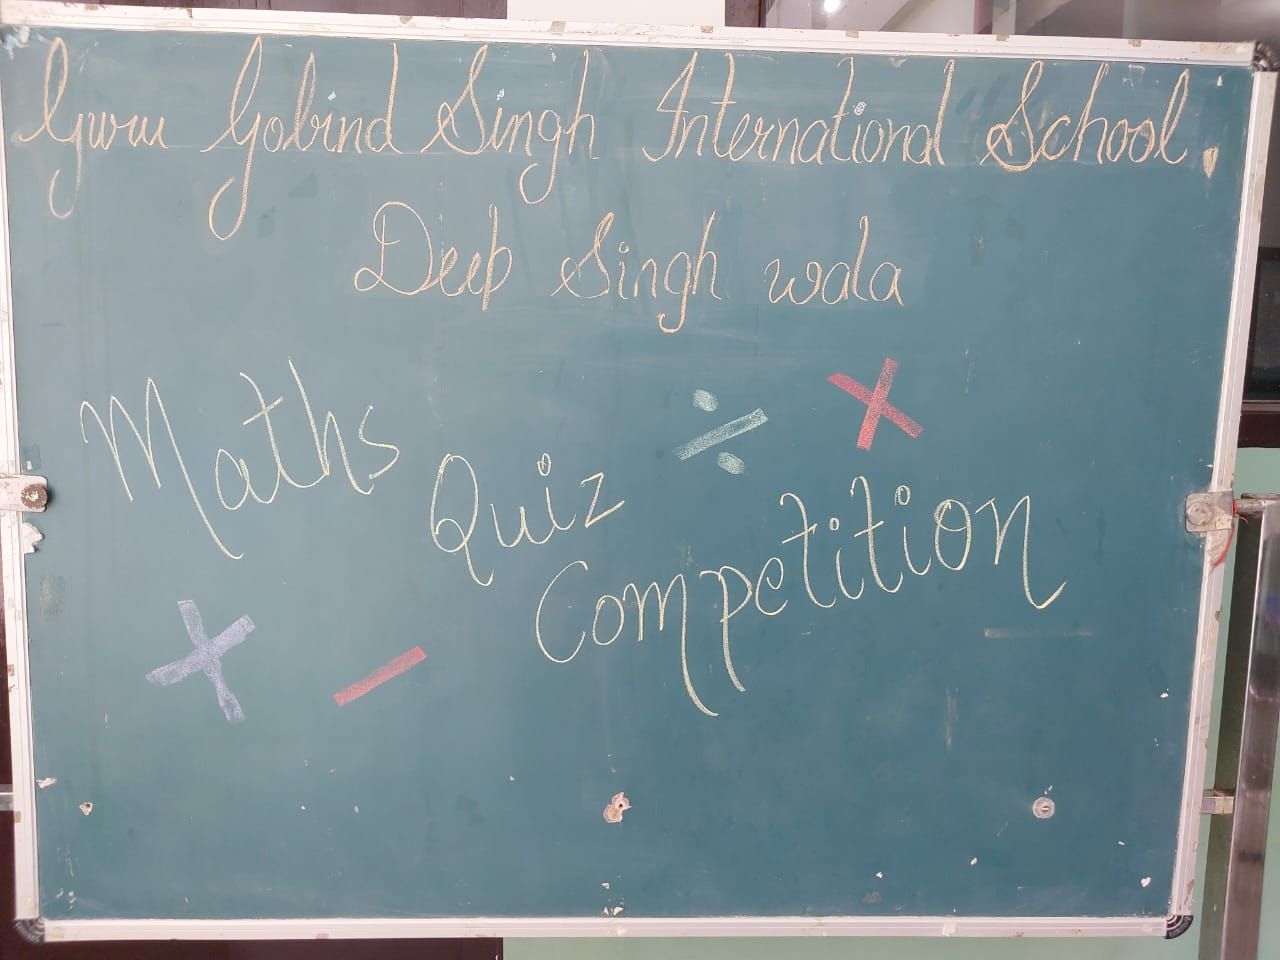 Guru Gobind Singh International School,
Deep Singh wala
Maths
Quiz
Competition
÷ ×
+ −